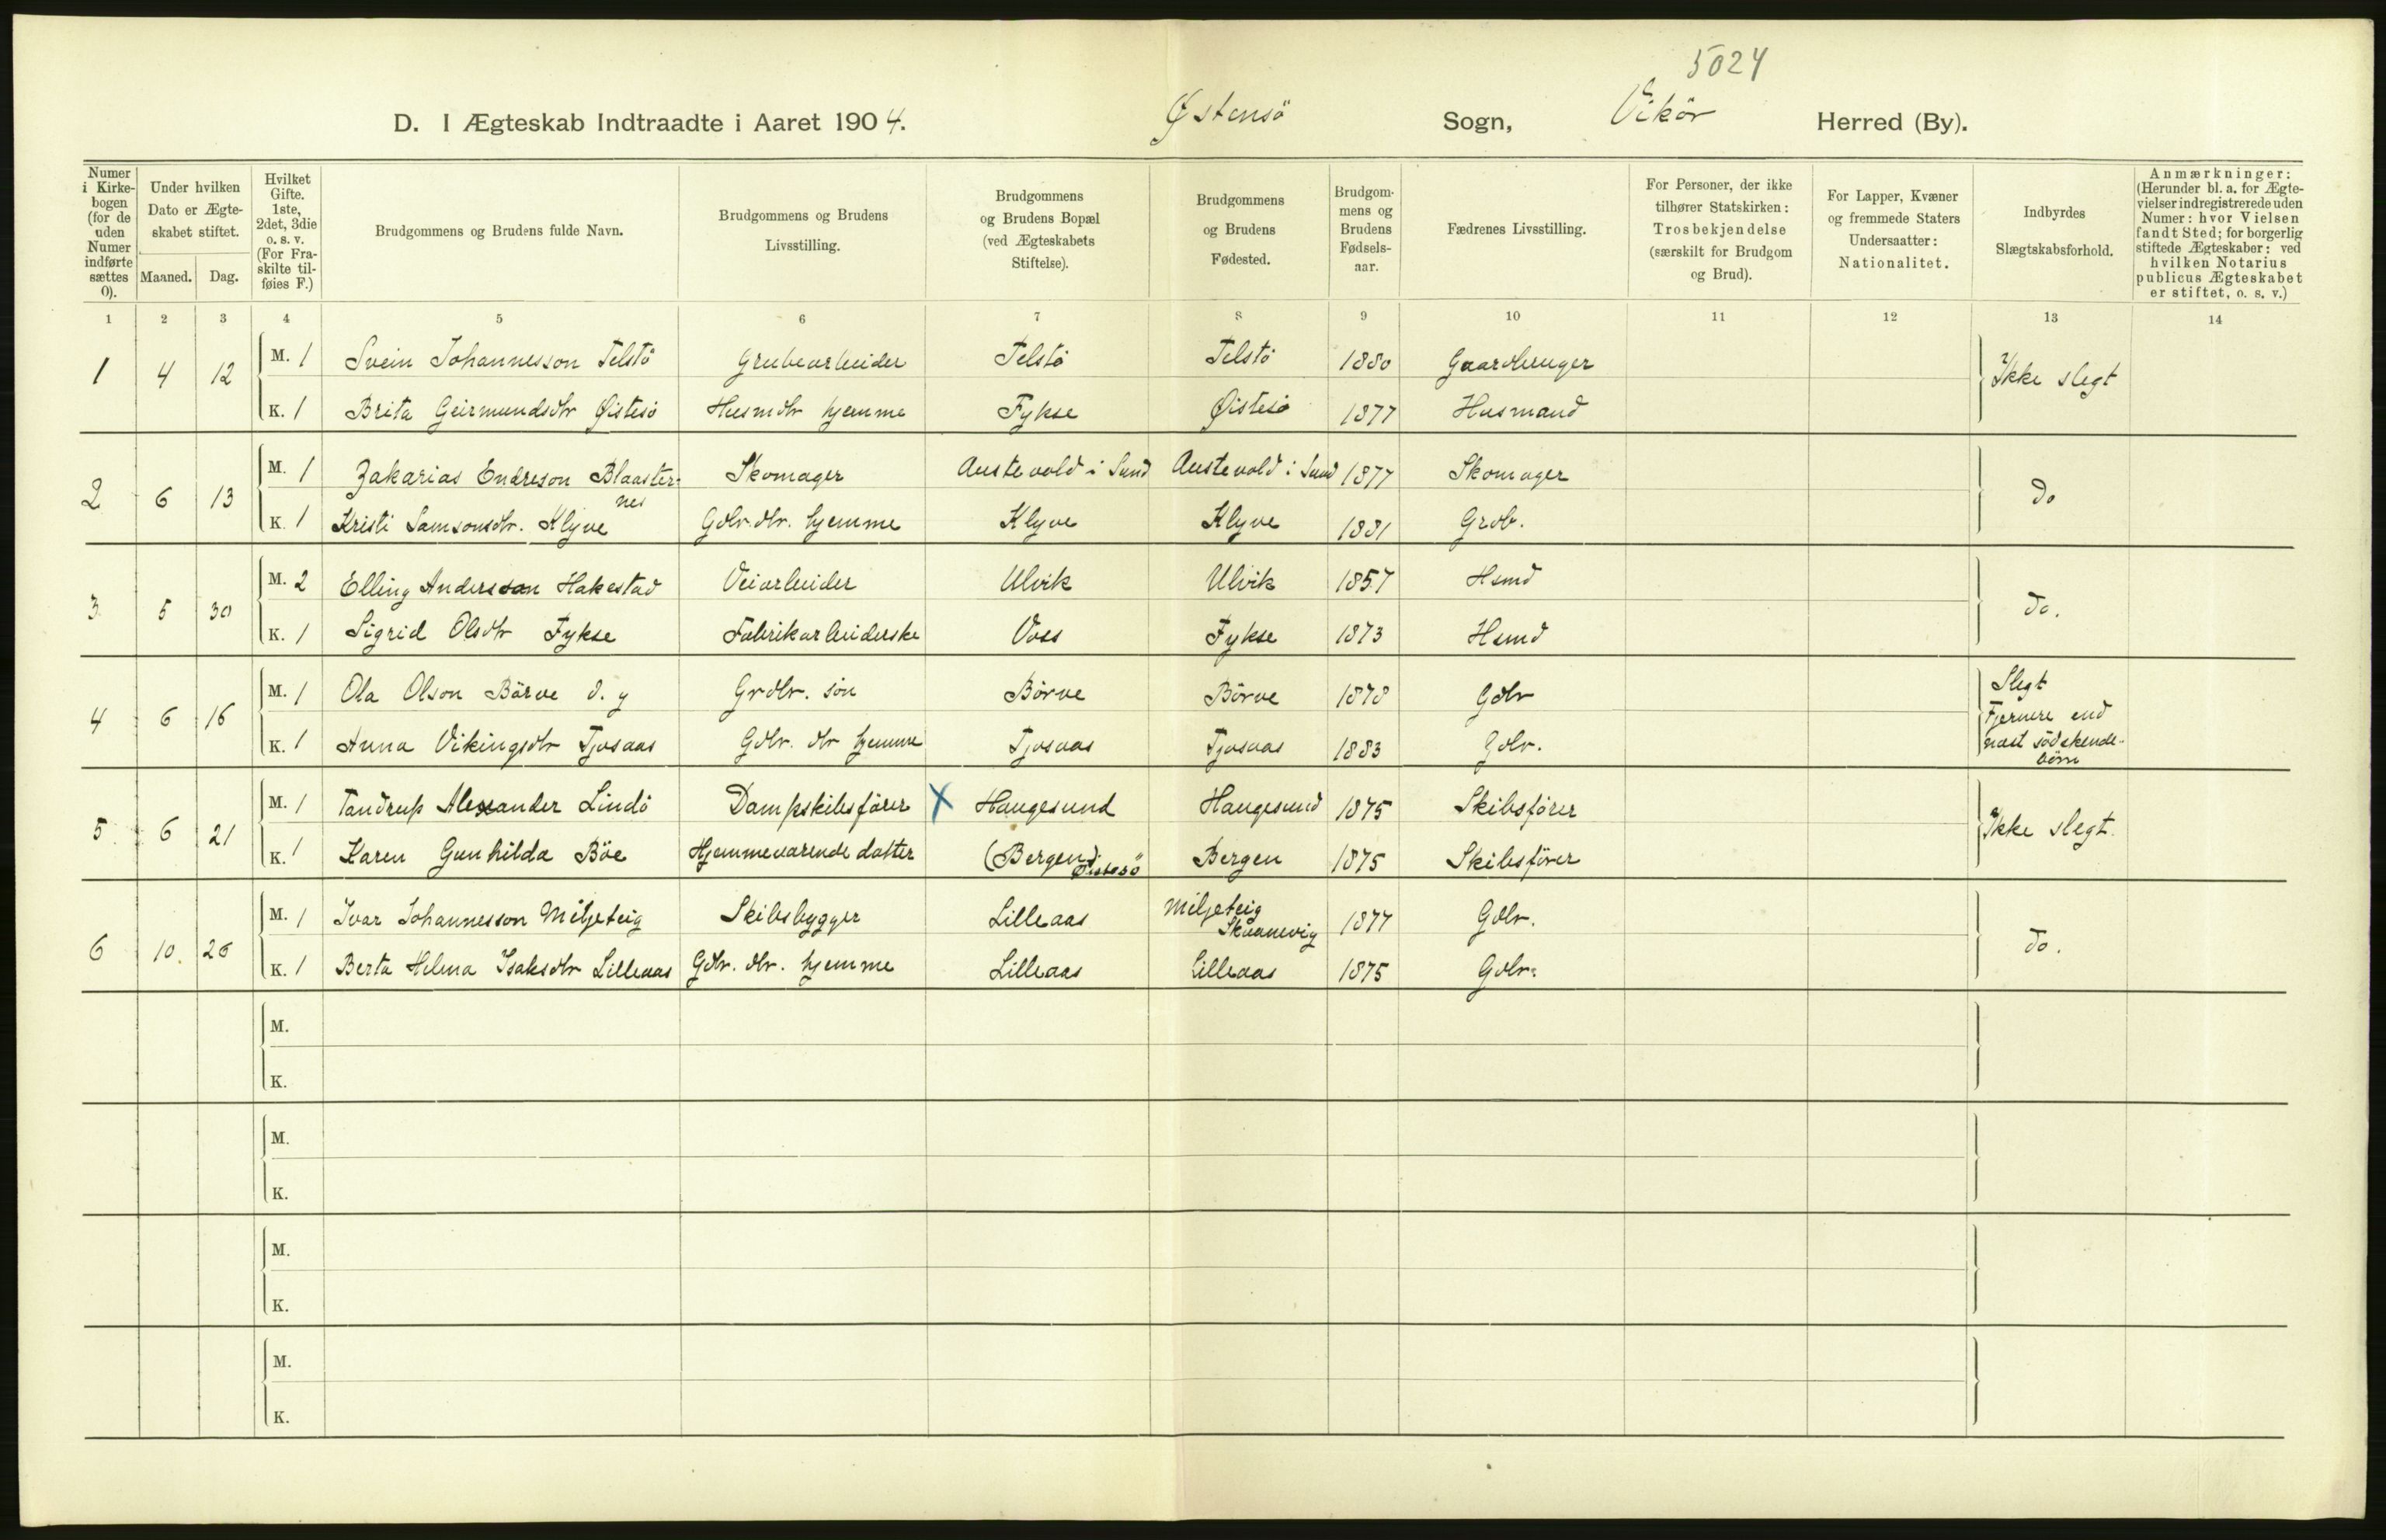 5024
D. I Ægteskab Indtraadte i Aaret 1904. Østensö Sogn, Vikör Herred (By).
Numer i Kirkebogen (for de uden Numer indførte sættes 0).
Under hvilken Dato er Ægteskabet stiftet.
Maaned. Dag.
Hvilket Gifte. 1ste, 2det, 3die o. s. v. (For Fraskilte tilføies F.)
Brudgommens og Brudens fulde Navn.
Brudgommens og Brudens Livsstilling.
Brudgommens og Brudens Bopæl (ved Ægteskabets Stiftelse).
Brudgommens og Brudens Fødested.
Brudgommens og Brudens Fødselsaar.
Fædrenes Livsstilling.
For Personer, der ikke tilhører Statskirken: Trosbekjendelse (særskilt for Brudgom og Brud).
For Lapper, Kvæner og fremmede Staters Undersaatter: Nationalitet.
Indbyrdes Slægtskabsforhold.
Anmærkninger: (Herunder bl. a. for Ægtevielser indregistrerede uden Numer: hvor Vielsen fandt Sted; for borgerlig stiftede Ægteskaber: ved hvilken Notarius publicus Ægteskabet er stiftet, o. s. v.)
1 2 3 4 5 6 7 8 9 10 11 12 13 14
1 4 12 M. 1 Svein Johannesson Telstö Grubearbeider Telstö Telstö 1880 Gaardbruger Ikke slegt
K. 1 Brita Geirmundsdtr Øistesö Husmdtr hjemme Fykse Øistesö 1877 Husmand
2 6 13 M. 1 Zakarias Endreson Blaaster- Skomager Austevold i Sund Austevold i Sund 1877 Skomager do
nes
K. 1 Kristi Samsonsdtr. Klyve Gdbr. dtr. hjemme Klyve Klyve 1881 Grdb.
3 5 30 M. 2 Elling Andersson Hakestad Veiarbeider Ulvik Ulvik 1857 Hsmd do.
K. 1 Sigrid Olsdtr Fykse Fabrikarbeiderske Voss Fykse 1873 Hsmd
4 6 16 M. 1 Ola Olson Börve d. y Grdbr. sön Börve Börve 1878 Gdbr Slegt
Fjernere end
K. 1 Anna Vikingsdtr Tjosaas Gdbr. dtr hjemme Tjosaas Tjosaas 1883 Gdbr. næst södskende-
börn
5 6 21 M. 1 Tandrup Alexander Lindö Dampskibsförer X Haugesund Haugesund 1875 Skibsförer Ikke slegt.
K. 1 Karen Gunhilda Böe Hjemmeværende datter (Bergen). Bergen 1875 Skibsförer
Øistesö
6 10. 26 M. 1 Ivar Johannesson Miljeteig Skibsbygger Lilleaas Miljeteig 1877 Gdbr. do.
Skaanevig
K. 1 Berta Helena Isaksdtr Lilleaas Gdbr. dtr. hjemme Lilleaas Lilleaas 1875 Gdbr.
M.
K.
M.
K.
M.
K.
M.
K.